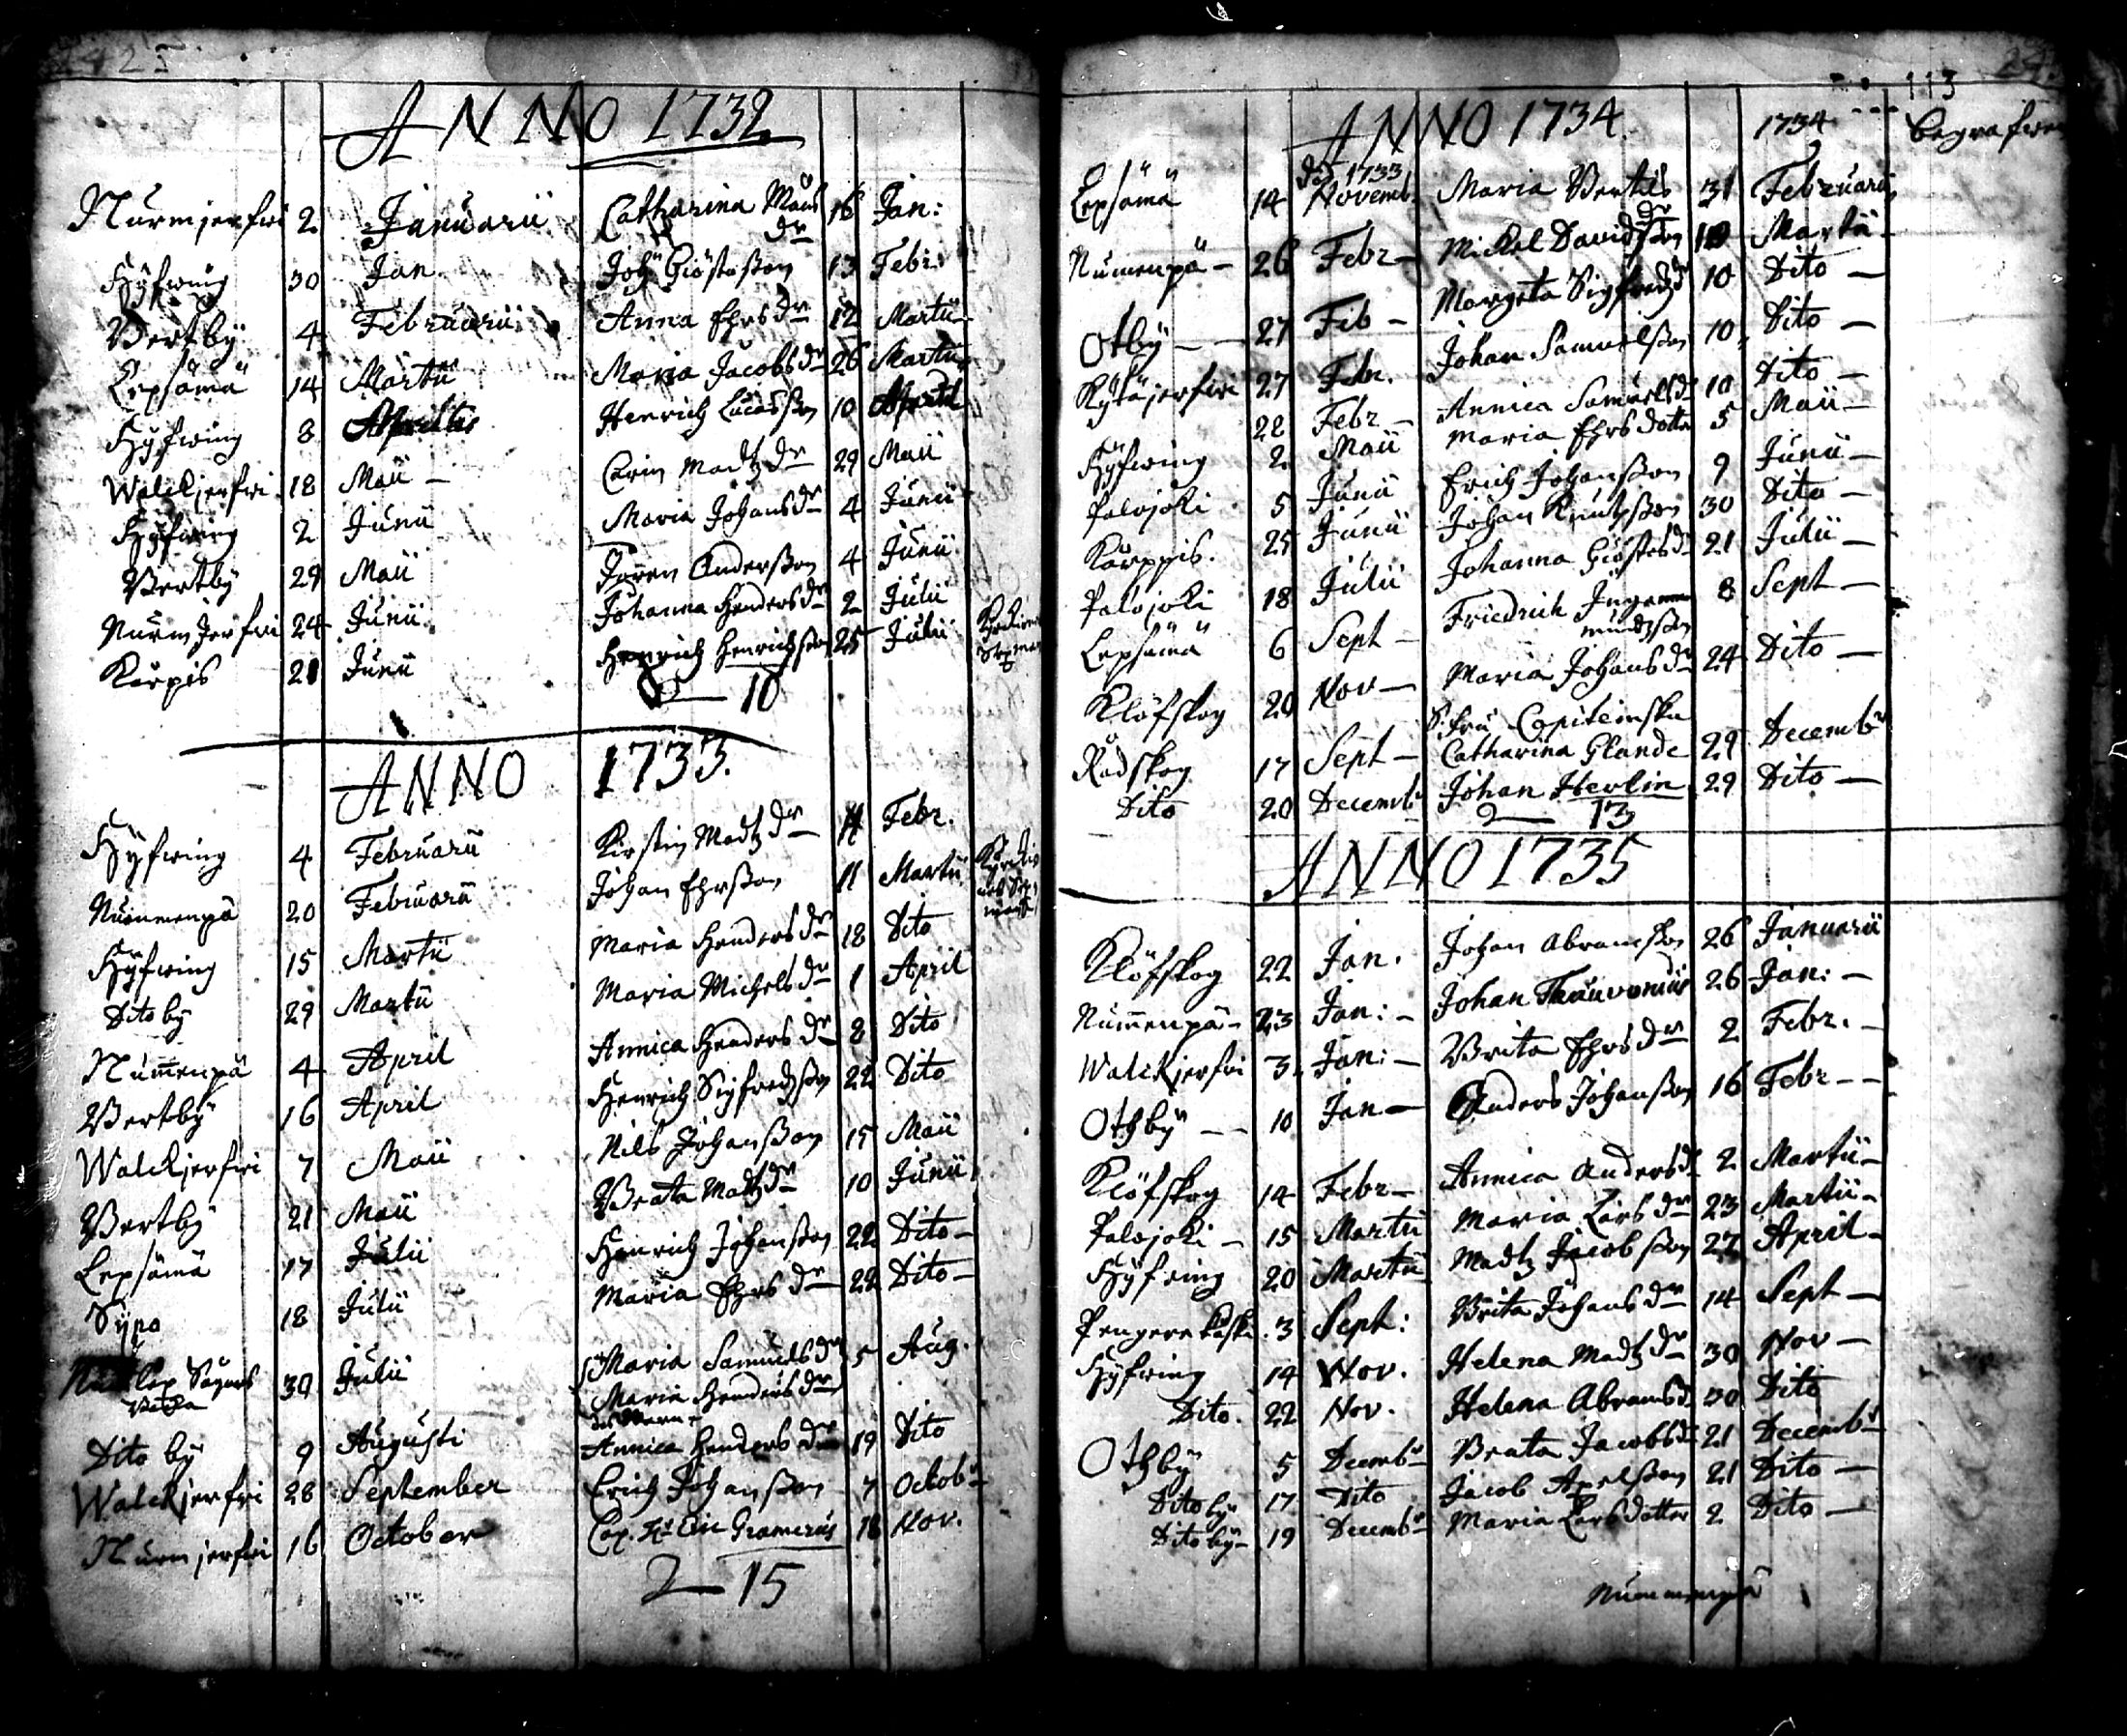 ANNO 1732
Nurmjerfwi 2 Januarii Catharina Måns dr 16 Jan:
Hyfwing 30 Jan Joh: Giöstasson 13 Febr:
Vertby 4 Februarii Anna Ehrs dr 12 Martii
Lepsämä 14 Martii Maria Jacobs dr 26 Martii
Hyfwing 8 Aprillis Henrich Lucasson 10 Aprill
Walckjerfwi 18 Maii Carin Madtz dr 29 Maii
Hyfwing 2 Junii Maria Johans dr 4 Junii
Vertby 29 Maii Jören Andersson 4 Junii
Nurmjerfwi 24 Junii Johanna Henders dr 2 Julii
Kårpis 21 Junii Henrich Henrichsson 25 Julii
10
ANNO 1733.
Hyfwing 4 Februarii Kirstin Madtz dr 11 Febr.
Nummenpä 20 Februarii Johan Ehrsson 11 Martii
Hyfwing 15 Martii Maria Henders dr 18 Dito
Dito by 29 Martii Maria Michels dr 1 April
Nummenpä 4 April Annica Henders dr 8 Dito
Vertby 16 April Henrich Sigfredzson 22 Dito
Walckjerfwi 7 Maii Nils Johansson 15 Maii
Vertby 21 Maii Breta Madtz dr 10 Junii
Lepsämä 17 Julii Henrich Johansson 22 Dito
Sypo 18 Julii Maria Ehrs dr 22 Dito
30 Julii Maria Samuels dr 5 Aug.
Maria Henders dr
Dito by 9 Augusti Annica Henders dr 19 Dito
Walckjerfwi 28 September Erich Johansson 7 Octob:
Nurmjerfwi 16 October Cap. Gramerus 18 Nov.
2 — 15
113
ANNO 1734 1734 begrafwen
1733
Lepsämä 14 Novemb. Maria Bertils dr 31 Februarii
Numenpä 26 Febr Michel Davidsson 10 Martii
Otby 27 Feb Margeta Sigfredz d 10 Dito
Kytäjerfwi 27 Febr. Johan Samuelsson 10 Dito
22 Febr Annica Samuels d 10 Dito
Hyfwing 2 Maii Maria Ehrs dotter 5 Maii
Palojoki 5 Junii Erich Johansson 9 Junii
Kårppis. 25 Junii Johan Knutzson 30 Dito
Palojoki 18 Julii Johanna Giöstas d 21 Julii
Lepsämä 6 Sept Friedrich Ingemundzson 8 Sept
Klöfskog 20 Nov Maria Johans dr 24 Dito
Rådskog 17 Sept S. Fru Capiteinska Catharina Glande 29 Decemb
Dito 20 Decemb Johan Herlin 29 Dito
2 — 13
ANNO 1735
Klöfskog 22 Jan. Johan Abramsson 26 Januarii
Nummenpä 23 Jan: Johan Thauvonius 26 Jan:
Walckjerfwi 3 Jan: Brita Ehrs dr 2 Febr.
Othby 10 Jan Anders Johansson 16 Febr
Klöfskog 14 Febr Annica Anders d 2 Martii
Palojoki 15 Martii Maria Lars dr 23 Martii
Hyfwing 20 Martii Madtz Jacobsson 27 April
Pengerekoski 3 Sept: Brita Johans dr 14 Sept
Hyfwing 14 Nov. Helena Madtz dr 30 Nov
Dito. 22 Nov. Helena Abrams d 30 Dito
Othby 5 Decemb Breta Jacobs d 21 Decemb
Dito by 17 Dito Jacob Axelsson 21 Dito
Dito by 19 Decemb Maria Lars dotter 2 Dito
Nummenpä